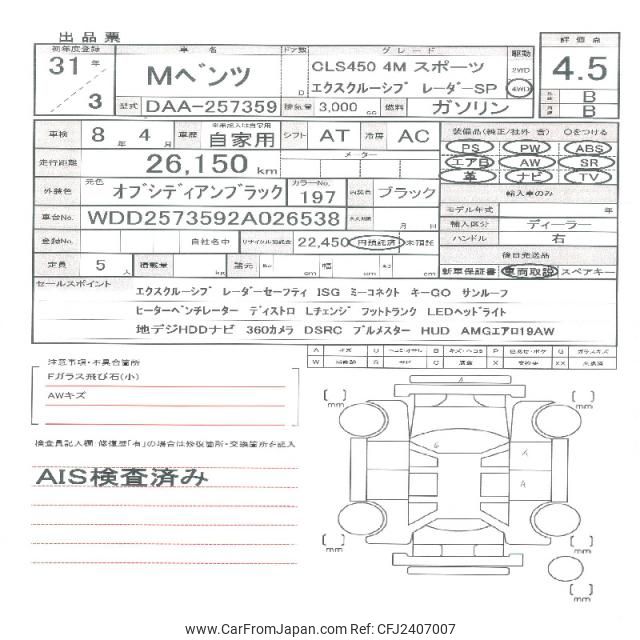 出品票
初年度登録 車名 ドア数 グレード 駆動 評価点
31年 3
Mベンツ
D
CLS450 4M スポーツ
エクスクルーシブ レーダーSP
2WD
4WD
4.5
B
B
型式 DAA-257359 排気量 3,000 cc 燃料 ガソリン
車検 8年 4月 車歴 自家用 シフト AT 冷房 AC
装備品(純正/社外 含) ○をつける
PS PW ABS
エアB AW SR
革 ナビ TV
走行距離 26,150 km メーター
外装色 元色 オブシディアンブラック カラーNo. 197 内装色 ブラック
輸入車のみ
車台No. WDD2573592A026538 月 日
モデル年式 年
輸入区分 ディーラー
登録No. 自社名中 リサイクル預託金 22,450 円預託済 未預託
ハンドル 右
定員 5人 積載量 kg 諸元 No cm 幅 cm cm
後日発送品
新車保証書 車両取説 スペアキー
セールスポイント
エクスクルーシブ レーダーセーフティ ISG ミーコネクト キーGO サンルーフ
ヒーターベンチレーター ディストロ Lチェンジ フットトランク LEDヘッドライト
地デジHDDナビ 360カメラ DSRC ブルメスター HUD AMGエアロ19AW
A キズ U B キズ・ヘコミ P G ガラスキズ
W S サビ C 腐食 X XX
注意事項・不具合箇所
Fガラス飛び石(小)
AWキズ
検査員記入欄 修復歴「有」の場合は修復箇所・交換箇所を記入
AIS検査済み
mm
mm
G
A
A
mm
mm
mm
www.CarFromJapan.com Ref: CFJ2407007